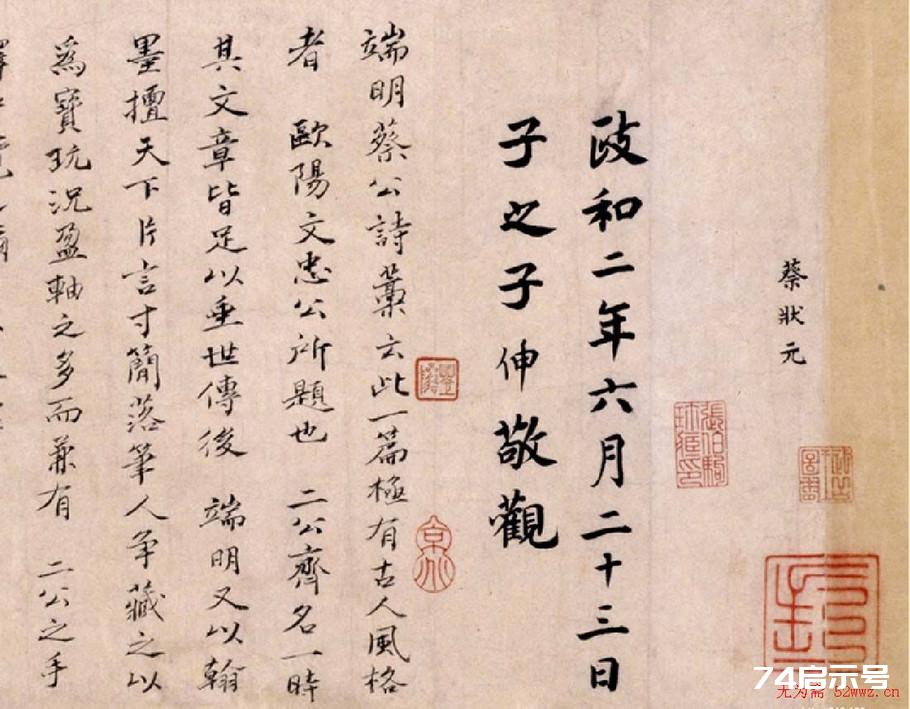 蔡狀元
政和二年六月二十三日
子之子伸敬觀
端明蔡公詩藁云此一篇極有古人風格
者 歐陽文忠公所題也 二公齊名一時
其文章皆足以垂世傳後 端明又以翰
墨擅天下片言寸簡落筆人争藏之以
爲寶玩況盈軸之多而兼有 二公之手
張伯駒
74启示号
无为需 52wwz.cn